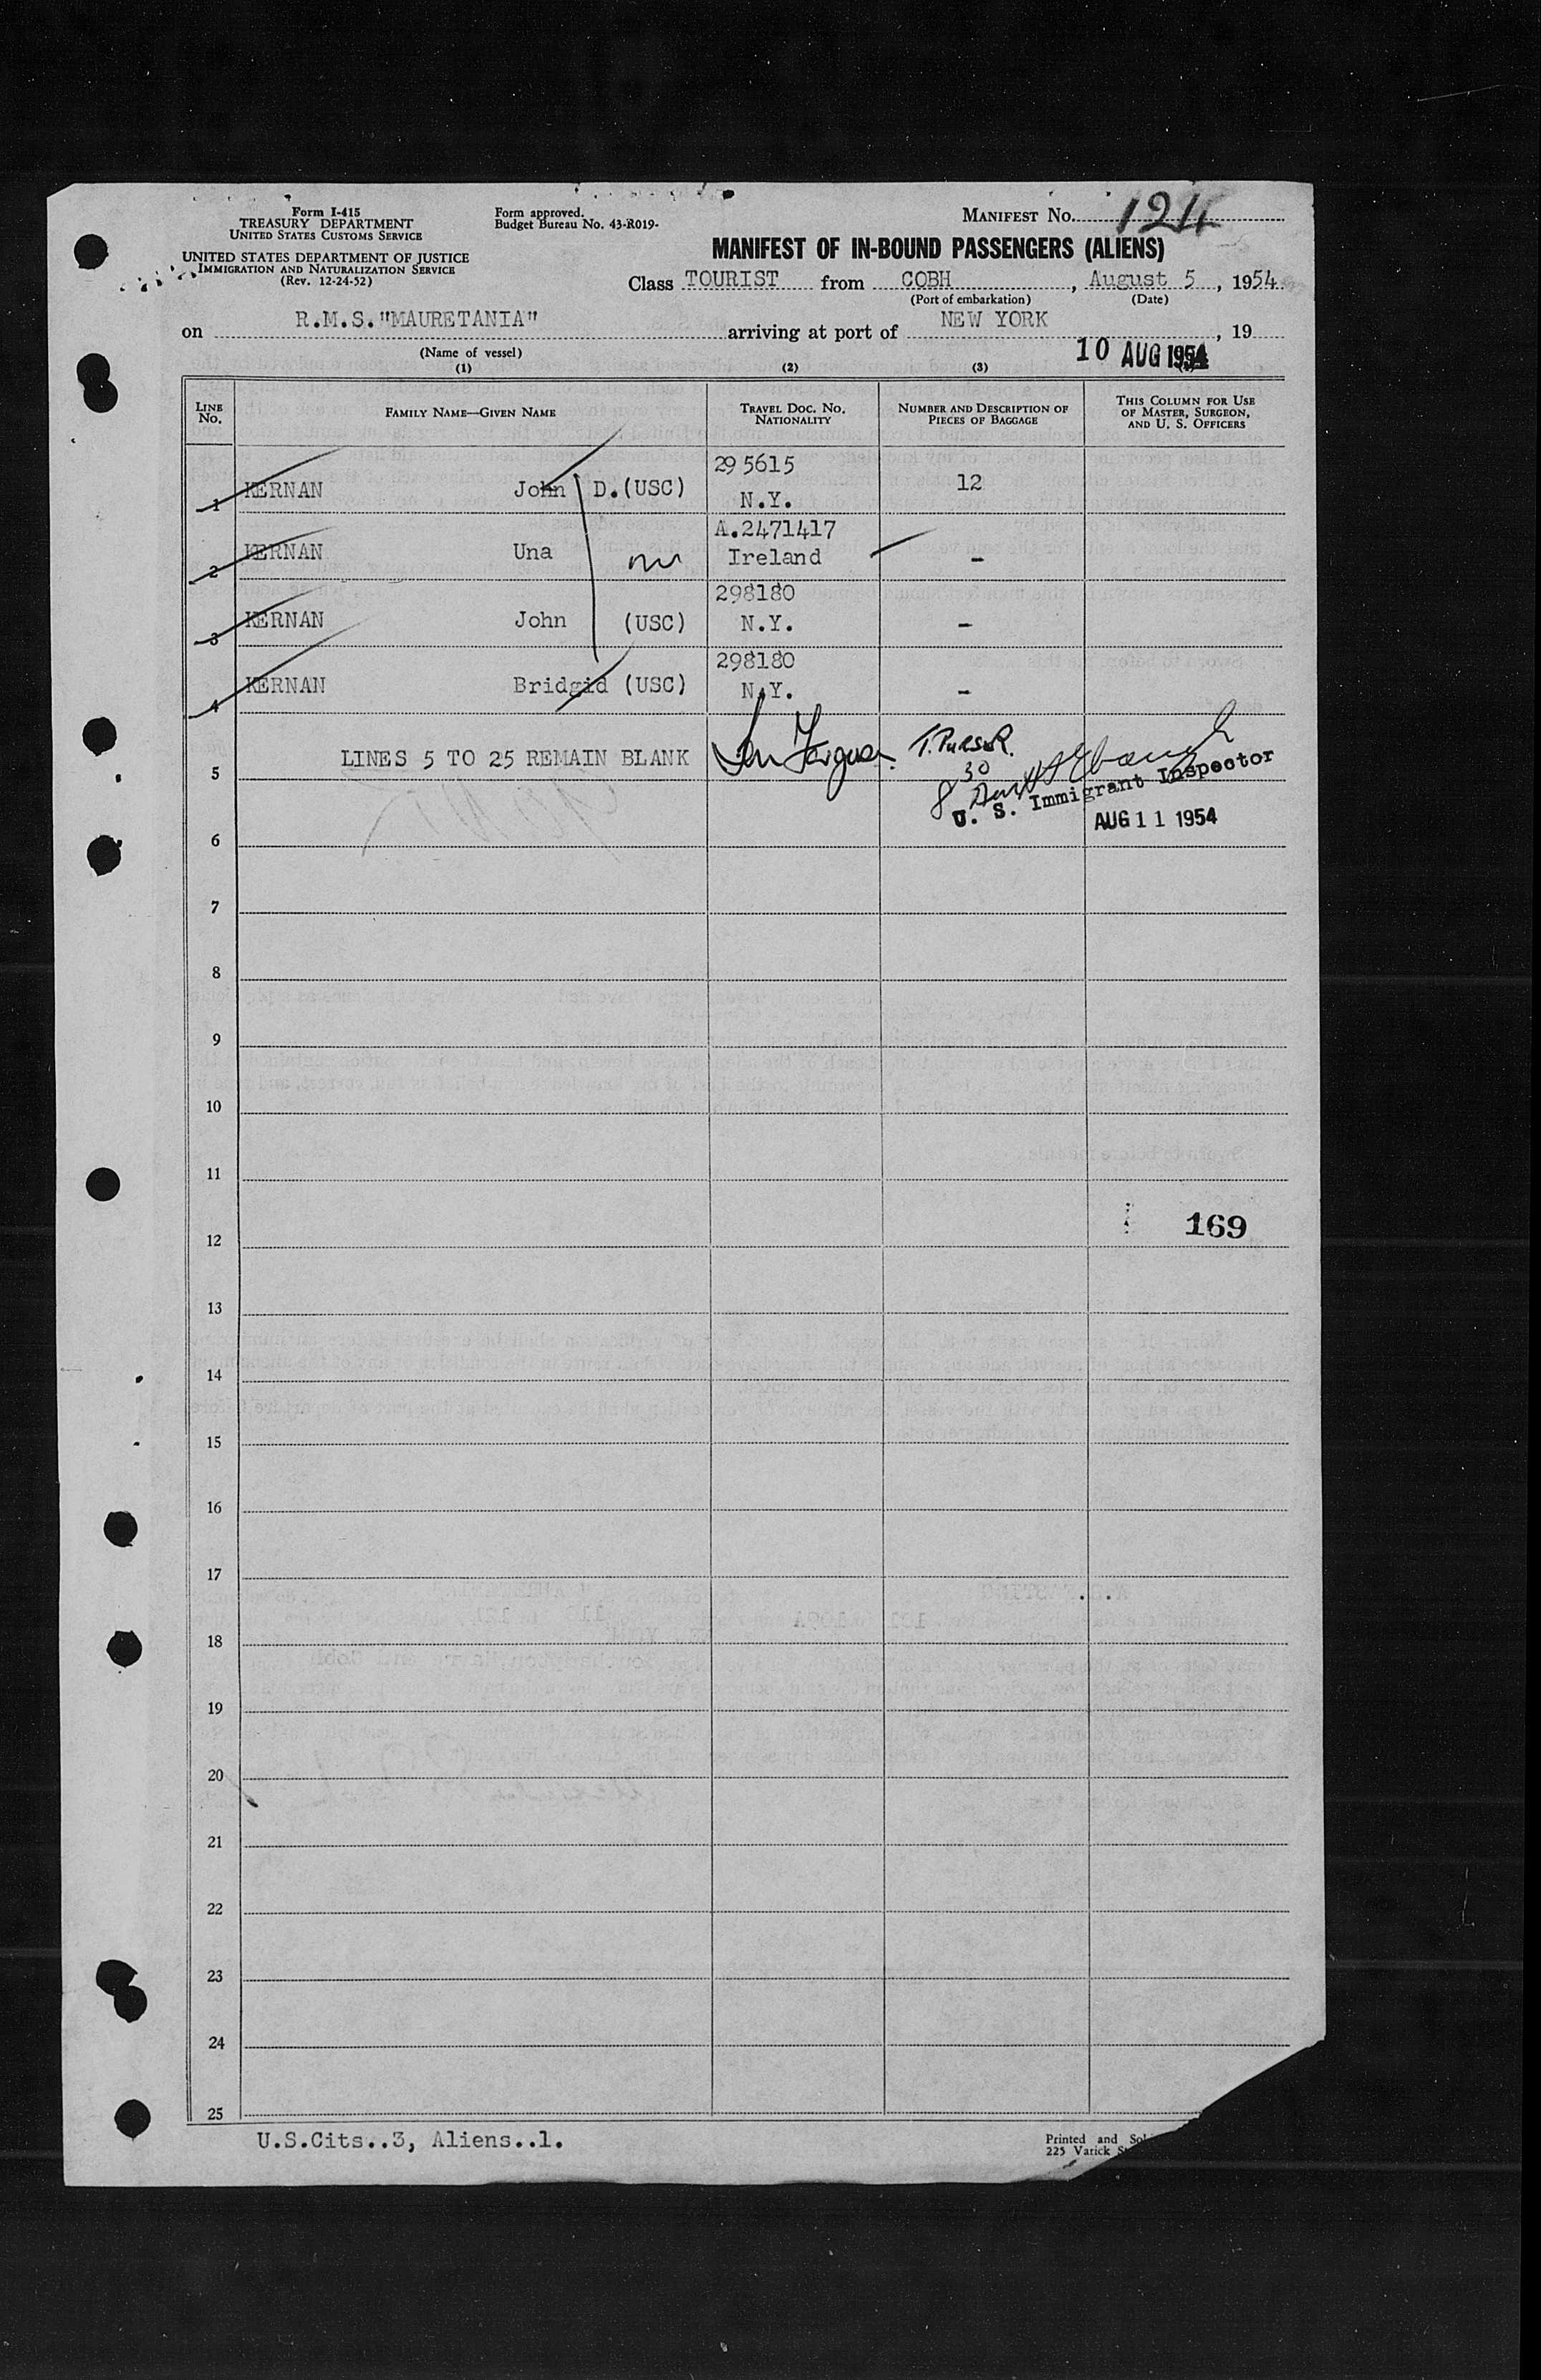 Form I-415
TREASURY DEPARTMENT
UNITED STATES CUSTOMS SERVICE
UNITED STATES DEPARTMENT OF JUSTICE
IMMIGRATION AND NATURALIZATION SERVICE
(Rev. 12-24-52)
Form approved.
Budget Bureau No. 43-R019-
MANIFEST No. 124
MANIFEST OF IN-BOUND PASSENGERS (ALIENS)
Class TOURIST from COBH, August 5, 1954
(Port of embarkation) (Date)
on R.M.S."MAURETANIA" arriving at port of NEW YORK, 19
10 AUG 1954
(Name of vessel)
(1) (2) (3)
LINE No. FAMILY NAME—GIVEN NAME TRAVEL DOC. NO. NATIONALITY NUMBER AND DESCRIPTION OF PIECES OF BAGGAGE THIS COLUMN FOR USE OF MASTER, SURGEON, AND U. S. OFFICERS
295615
1 KERNAN John D. (USC) N.Y. 12
A.2471417
2 KERNAN Una Ireland -
298180
3 KERNAN John (USC) N.Y. -
298180
4 KERNAN Bridgid (USC) N.Y. -
5 LINES 5 TO 25 REMAIN BLANK T. PURSER.
30
U. S. Immigrant Inspector
AUG 11 1954
6
7
8
9
10
11
169
12
13
14
15
16
17
18
19
20
21
22
23
24
25
U.S.Cits..3, Aliens..1.
Printed and
225 Varick